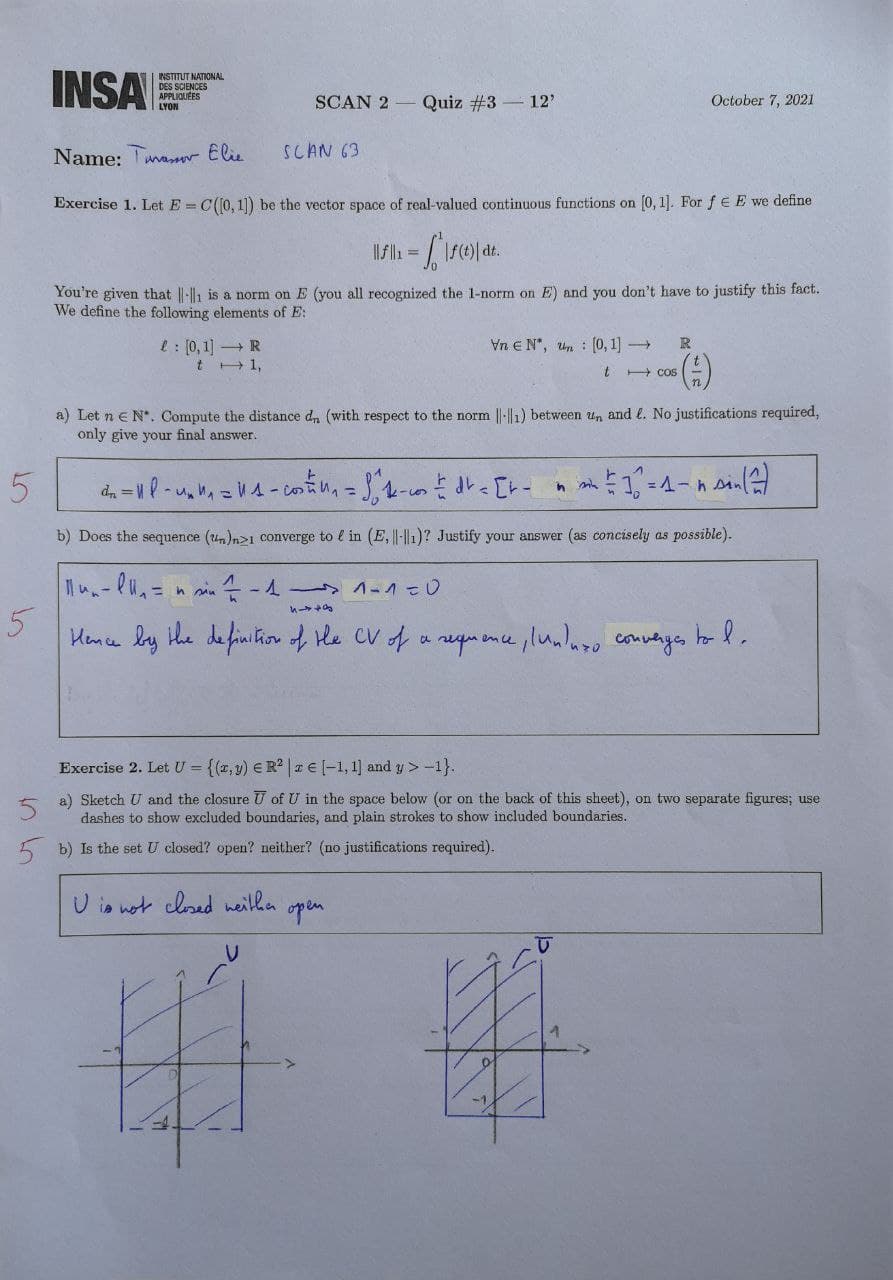 INSA INSTITUT NATIONAL
DES SCIENCES
APPLIQUÉES
LYON
SCAN 2 — Quiz #3 — 12’
October 7, 2021
Name: Elie SCAN 63
Exercise 1. Let E = C([0, 1]) be the vector space of real-valued continuous functions on [0, 1]. For f ∈ E we define
‖f‖₁ = ∫₀¹ |f(t)| dt.
You’re given that ‖·‖₁ is a norm on E (you all recognized the 1-norm on E) and you don’t have to justify this fact.
We define the following elements of E:
ℓ : [0, 1] ⟶ ℝ ∀n ∈ ℕ*, uₙ : [0, 1] ⟶ ℝ
t ⟼ 1, t ⟼ cos(t/n)
a) Let n ∈ ℕ*. Compute the distance dₙ (with respect to the norm ‖·‖₁) between uₙ and ℓ. No justifications required,
only give your final answer.
5
dₙ = ‖ℓ - uₙ‖₁ = ‖1 - cos t/n‖₁ = ∫₀¹ 1 - cos t/n dt = [t - n sin t/n]₀¹ = 1 - n sin(1/n)
b) Does the sequence (uₙ)ₙ≥₁ converge to ℓ in (E, ‖·‖₁)? Justify your answer (as concisely as possible).
‖uₙ - ℓ‖₁ = n sin 1/n - 1 ⟶ 1 - 1 = 0
n→+∞
5
Hence by the definition of the CV of a sequence, (uₙ)ₙ>₀ converges to ℓ.
Exercise 2. Let U = {(x, y) ∈ ℝ² | x ∈ [−1, 1] and y > −1}.
5
a) Sketch U and the closure U̅ of U in the space below (or on the back of this sheet), on two separate figures; use
dashes to show excluded boundaries, and plain strokes to show included boundaries.
5
b) Is the set U closed? open? neither? (no justifications required).
U is not closed neither open
U
U̅
-1 1
0
-1
- 1
0
-1